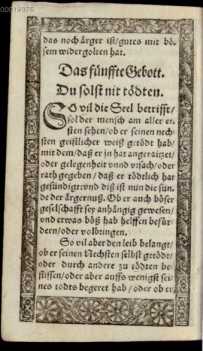 das noch ärger ist/gutes mit bö-
sem widergolten hat.
Das fünffte Gebott.
Du solst nit tödten.
So vil die Seel betrifft/
sol der mensch am aller er-
sten sehen/ob er seinen nech-
sten geistlicher weiß getödt hab/
mit dem/daß er jn hat angeraitzet/
oder gelegenheit vnnd vrsach/oder
rath gegeben/daß er tödtlich hat
gesündiget: vnd diß ist nun die sün-
de der ärgernuß. Ob er auch böser
gesellschafft sey anhängig gewesen/
vnd etwas böß hab helffen befür-
dern/oder volbringen.
So vil aber den leib belangt/
ob er seinen Nechsten selbst getödt/
oder durch andere zu tödten be-
flissen/oder aber auffs wenigst sei-
nes todts begeret hab/oder ob er